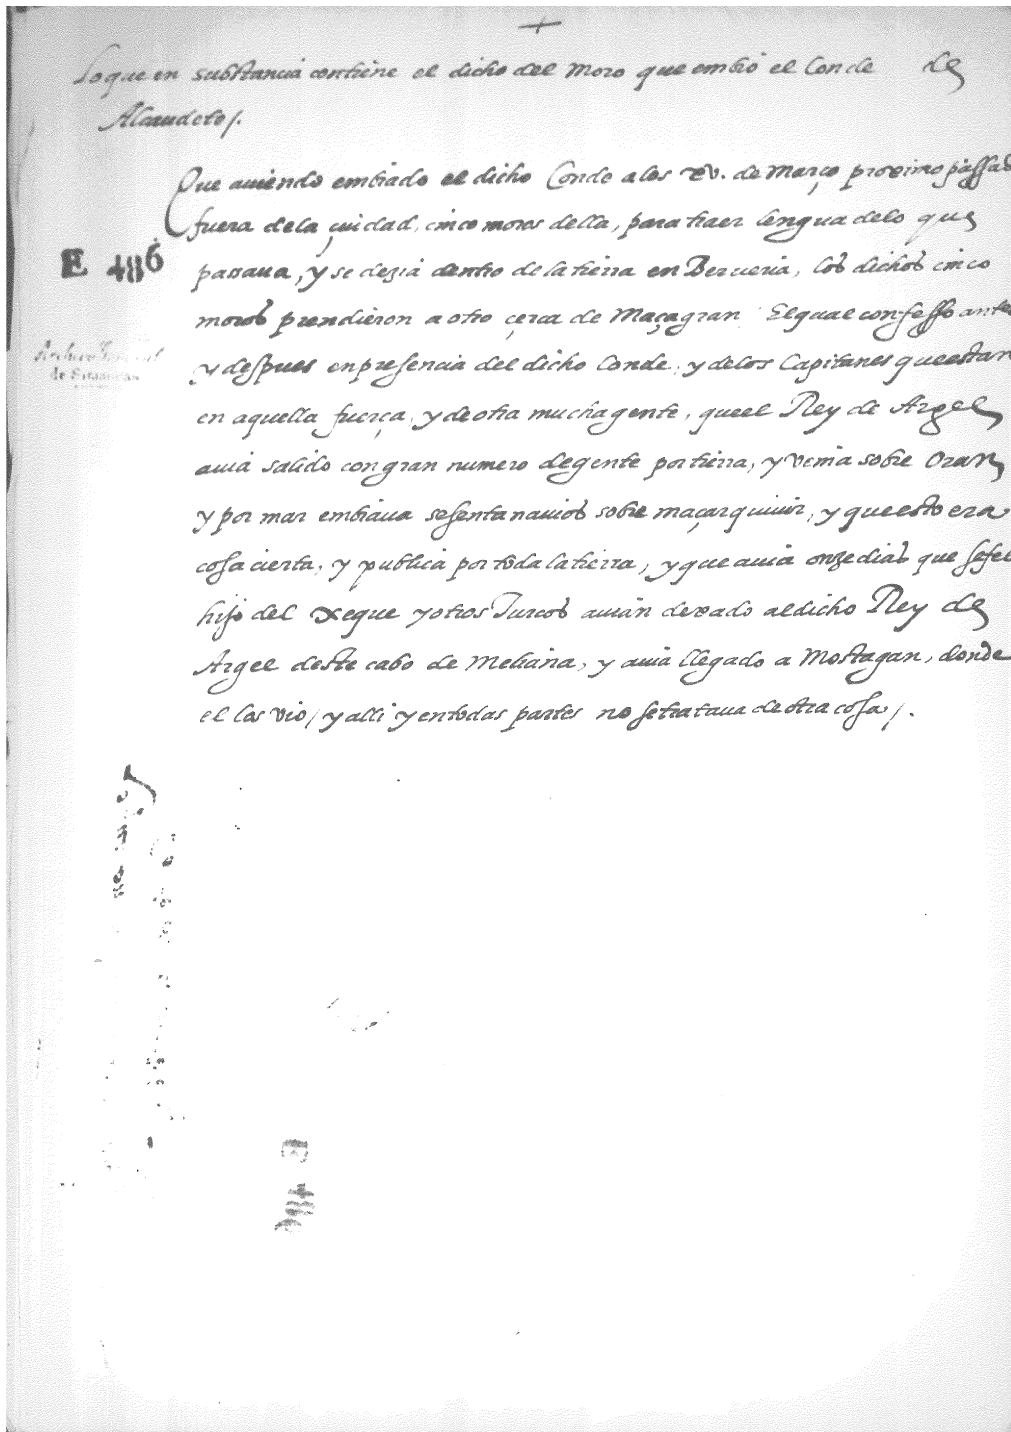 +
Lo que en substancia contiene el dicho del Moro que embió el Conde de
Alcaudete/.
Que auiendo embiado el dicho Conde a los xv. de Março proximo passad
fuera de la çuidad, cinco moros della, para traer lengua de lo que
passaua, y se dezia dentro de la tierra en Berueria, los dichos cinco
moros prendieron a otro çerca de Maçagran El qual confesso antes
y despues en presencia del dicho Conde, y de los Capitanes que estan
en aquella fuerça, y de otra mucha gente, que el Rey de Argel
auia salido con gran numero de gente por tierra, y venia sobre Oran
y por mar embiaua sesenta nauios sobre maçarquiuir, y que esto era
cosa cierta, y publica por toda la tierra, y que auia onze dias que
hijo del Xeque y otros Turcos auian dexado al dicho Rey de
Argel deste cabo de Meliana, y auia llegado a Mostagan, donde
el los vio/ y alli y en todas partes no se trataua de otra cosa/.
E 486
Archivo General
de Simancas
E 486